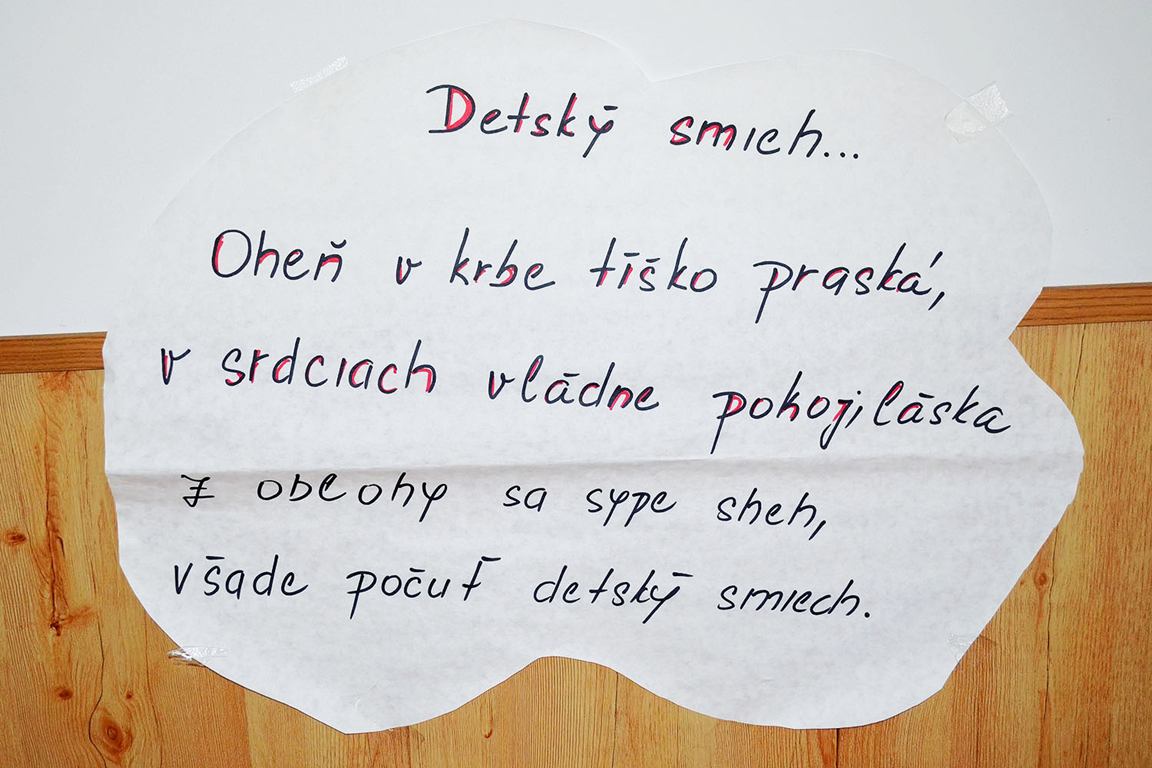 Detský smich...
Oheň v krbe tíško praská,
v srdciach vládne pokoj,láska
Z oblohy sa sype sneh,
všade počuť detský smiech.